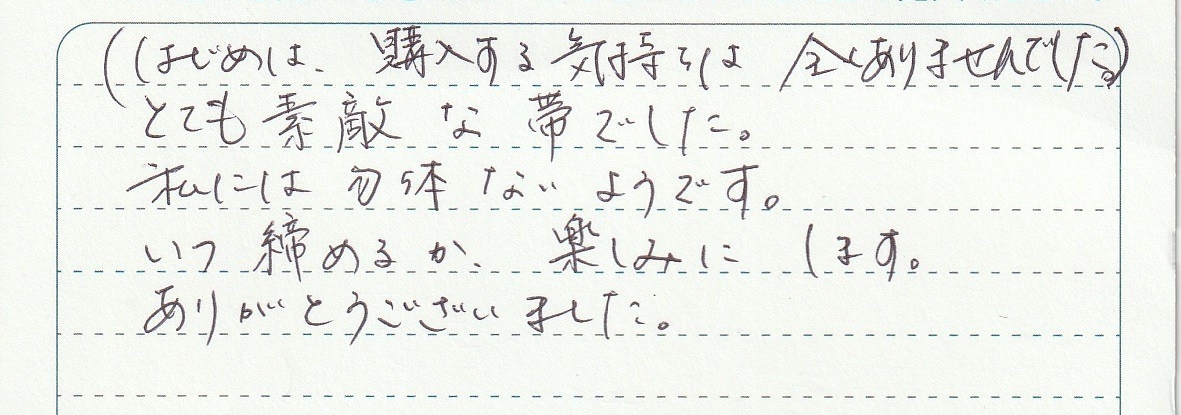 (はじめは、購入する気持ちは全くありませんでした。)
とても素敵な帯でした。
私には勿体ないようです。
いつ締めるか、楽しみにします。
ありがとうございました。